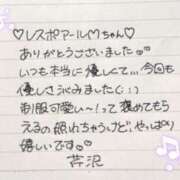 ♡レスポアールMちゃん♡
ありがとうございました。
いつも本当に優しくて…今回も
優しさしみました(; ;)
制服可愛い〜!って褒めてもら
えるの照れちゃうけど、やっぱり
嬉しいです。
芹沢